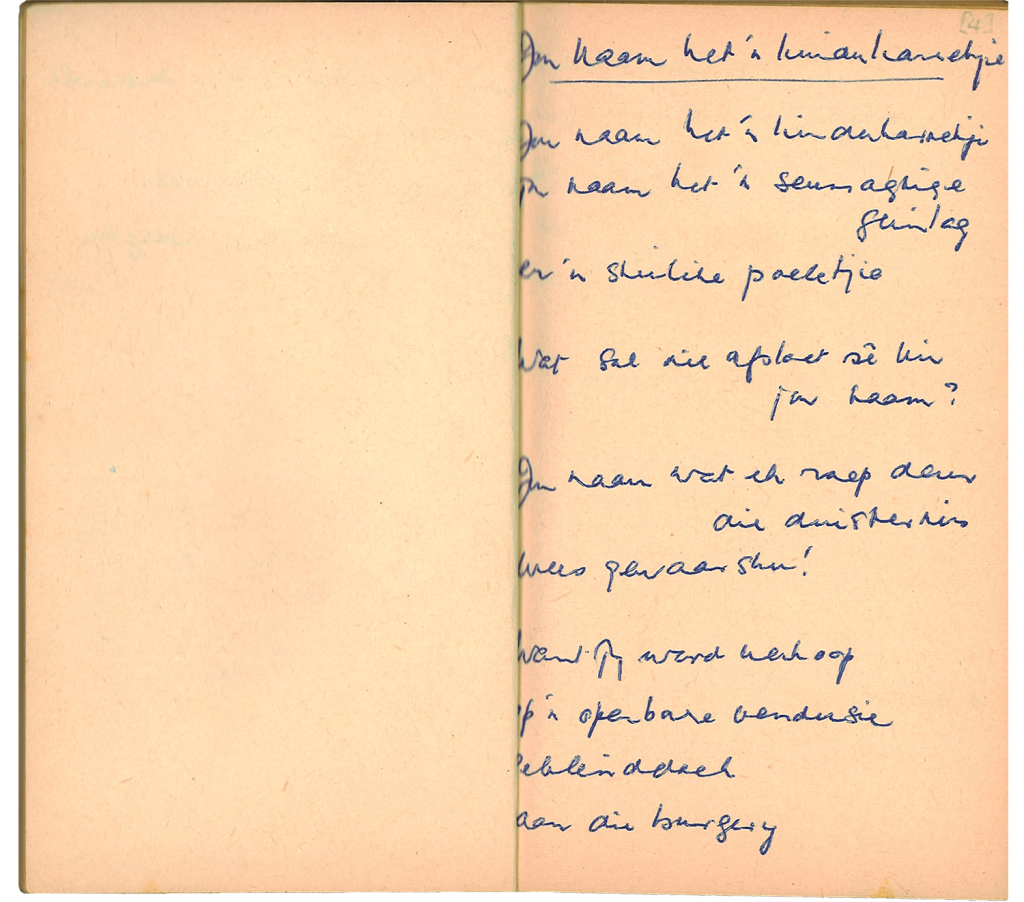 [4]
Jou naam het 'n kinderkarretjie
Jou naam het 'n kinderkarretjie
jou naam het 'n seunsagtige
glimlag
en 'n skielike poeletjie
Wat sal die afslaer sê vir
jou naam?
Jou naam wat ek roep deur
die duisternis
wees gewaarsku!
Want jy word verkoop
op 'n openbare vendusie
geblinddoek
aan die burgery